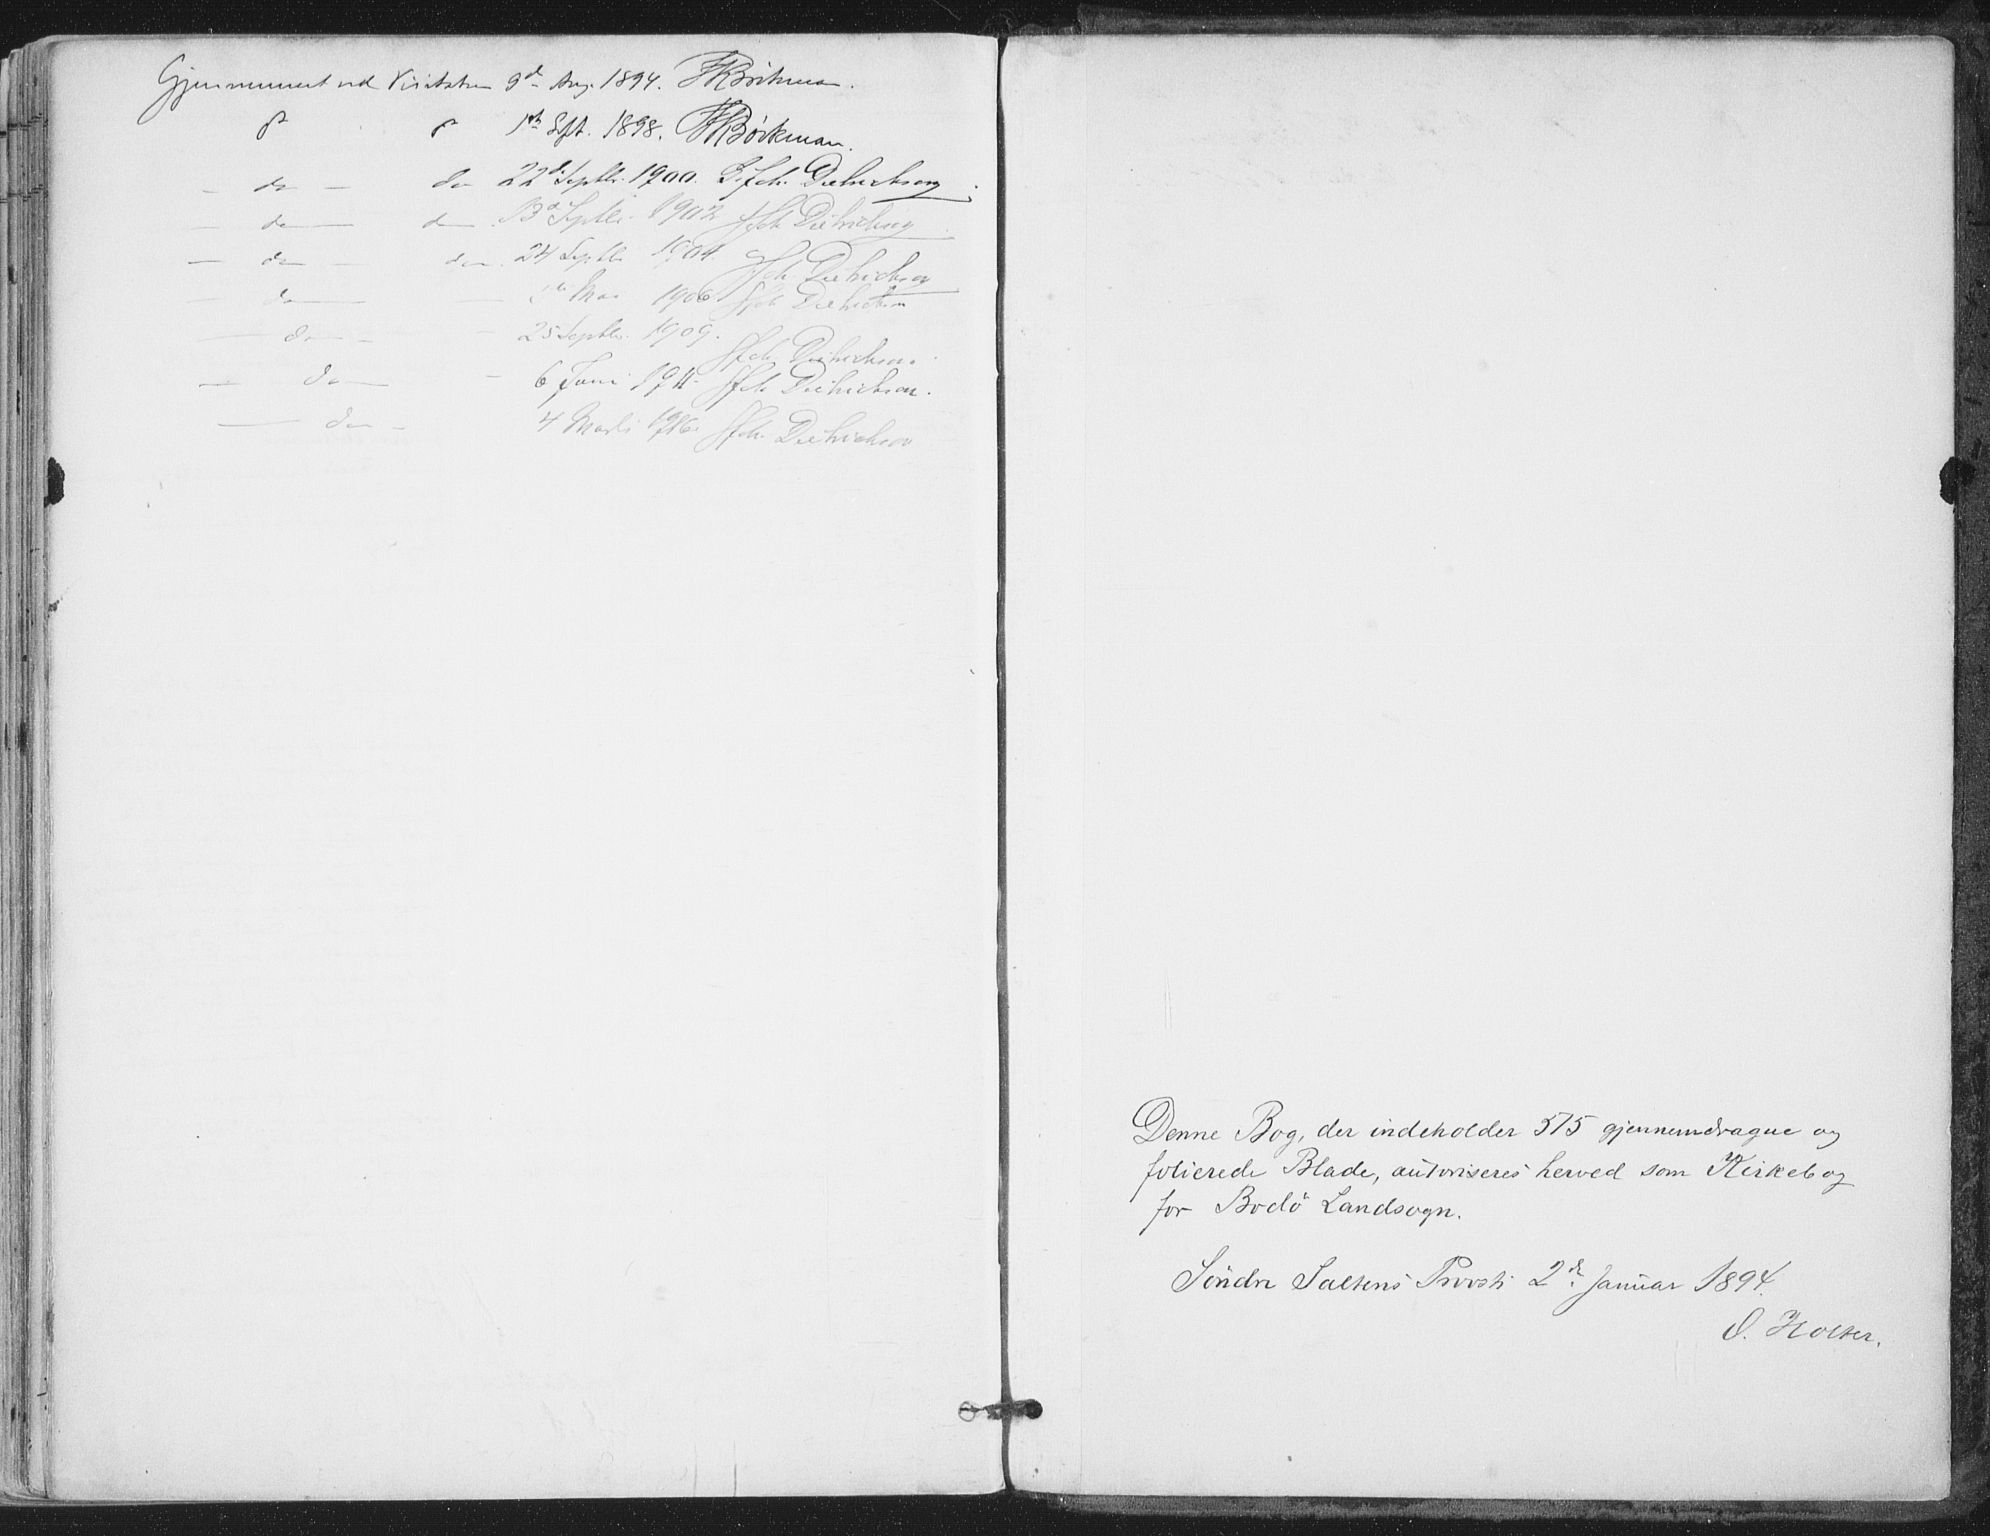 Gjennemseet ved Visitatsen 9d Aug. 1894. JRBöckman.
do do 1ste Sept. 1898. JRBöckman.
- do - do 22de Septbr. 1900. G. Fch. Dietrichson
- do - do 13de Septbr. 1902 Fch Dietrichson
- do - do 24 Septbr 1904. Fch. Dietrichson
- do - Mai 1906 Fch Dietrichson
- do - - 25 Septbr. 1909. Fch. Dietrichson.
- do - - 6 Juni 1911 Fch Dietrichson.
- do - 4 Marts 1916 Fch. Dietrichson
Denne Bog, der indeholder 375 gjennemdragne og
folierede Blade, autoriseres herved som Kirkebog
for Bodö Landsogn.
Söndre Saltens Provsti 2d Januar 1894.
O. Holter.